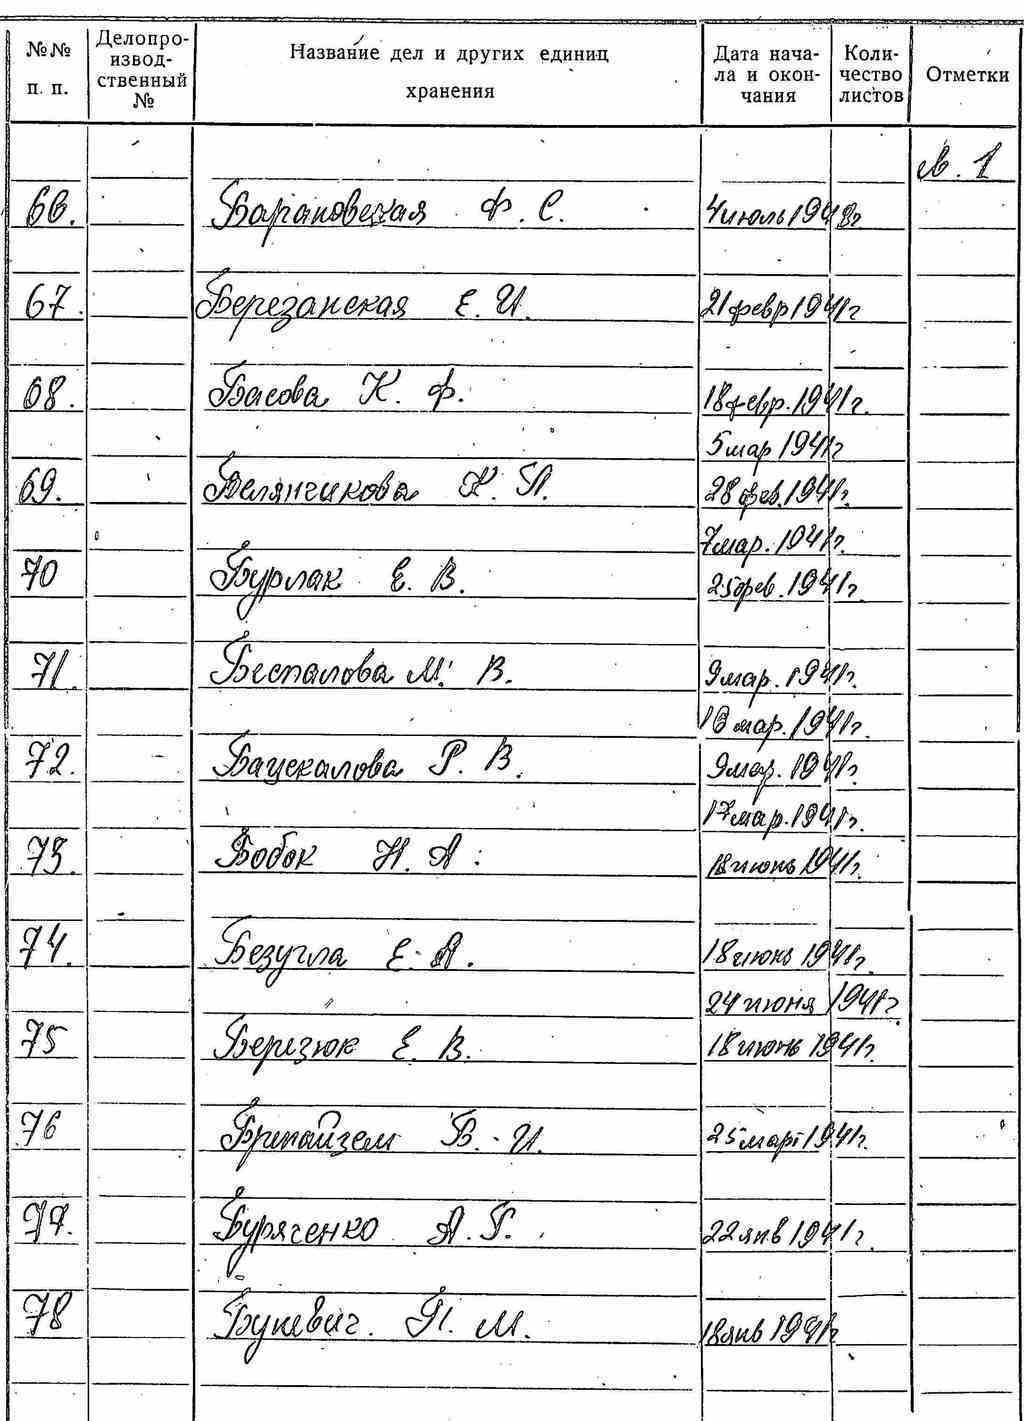 №№ п. п. Делопроизводственный № Название дел и других единиц хранения Дата начала и окончания Количество листов Отметки
л. 1
66. Барановская Ф. С. 4 июль 1940г
67. Березанская Е. И. 21 февр 1941г
68. Басова К. Ф. 18 февр. 1941г.
5 мар 1941г
69. Белянчикова К. П. 28 фев. 1941г.
7 мар. 1941г.
70 Бурлак Е. В. 25 фев. 1941г.
71. Беспалова М. В. 9 мар. 1941г.
мар. 1941г.
72. Бацекалова Р. В. 9 мар. 1941г.
17 мар. 1941г.
73. Бобок Н. А. 18 июнь 1941г.
74. Безугла Е. А. 18 июнь 1941г.
24 июня 1941г.
75 Березюк Е. В. 18 июнь 1941г.
76 В. И. 25 март 1941г.
77. Буряченко А. Г. 22 янв 1941г.
78 Букевич. П. М. 18 янв 1941г